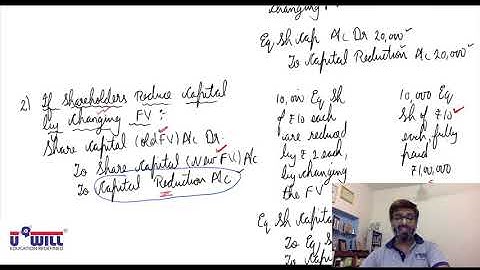 changing
Eq Sh Cap A/c Dr 20,000
To Capital Reduction A/c 20,000
2) If Shareholders Reduce Capital
by changing FV :
Share Capital (old FV) A/c Dr.
To Share Capital (New FV) A/c
To Capital Reduction A/c
10,000 Eq Sh
of ₹10 each
are reduced
by ₹2 each,
by changing
the FV
10,000 Eq
Sh of ₹10
each, fully
paid
₹1,00,000
Eq Sh Capita
To Eq S
To Capita
U WILL
EDUCATION REDEFINED